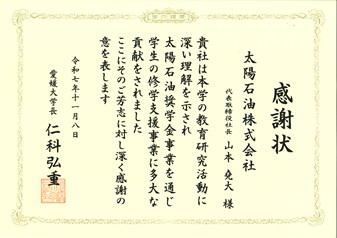 感謝状
太陽石油株式会社
代表取締役社長 山本 堯大 様
貴社は本学の教育研究活動に
深い理解を示され
太陽石油奨学金事業を通じ
学生の修学支援事業に多大な
貢献をされました
ここにそのご芳志に対し深く感謝の
意を表します
令和七年十一月八日
愛媛大学長 仁科弘重